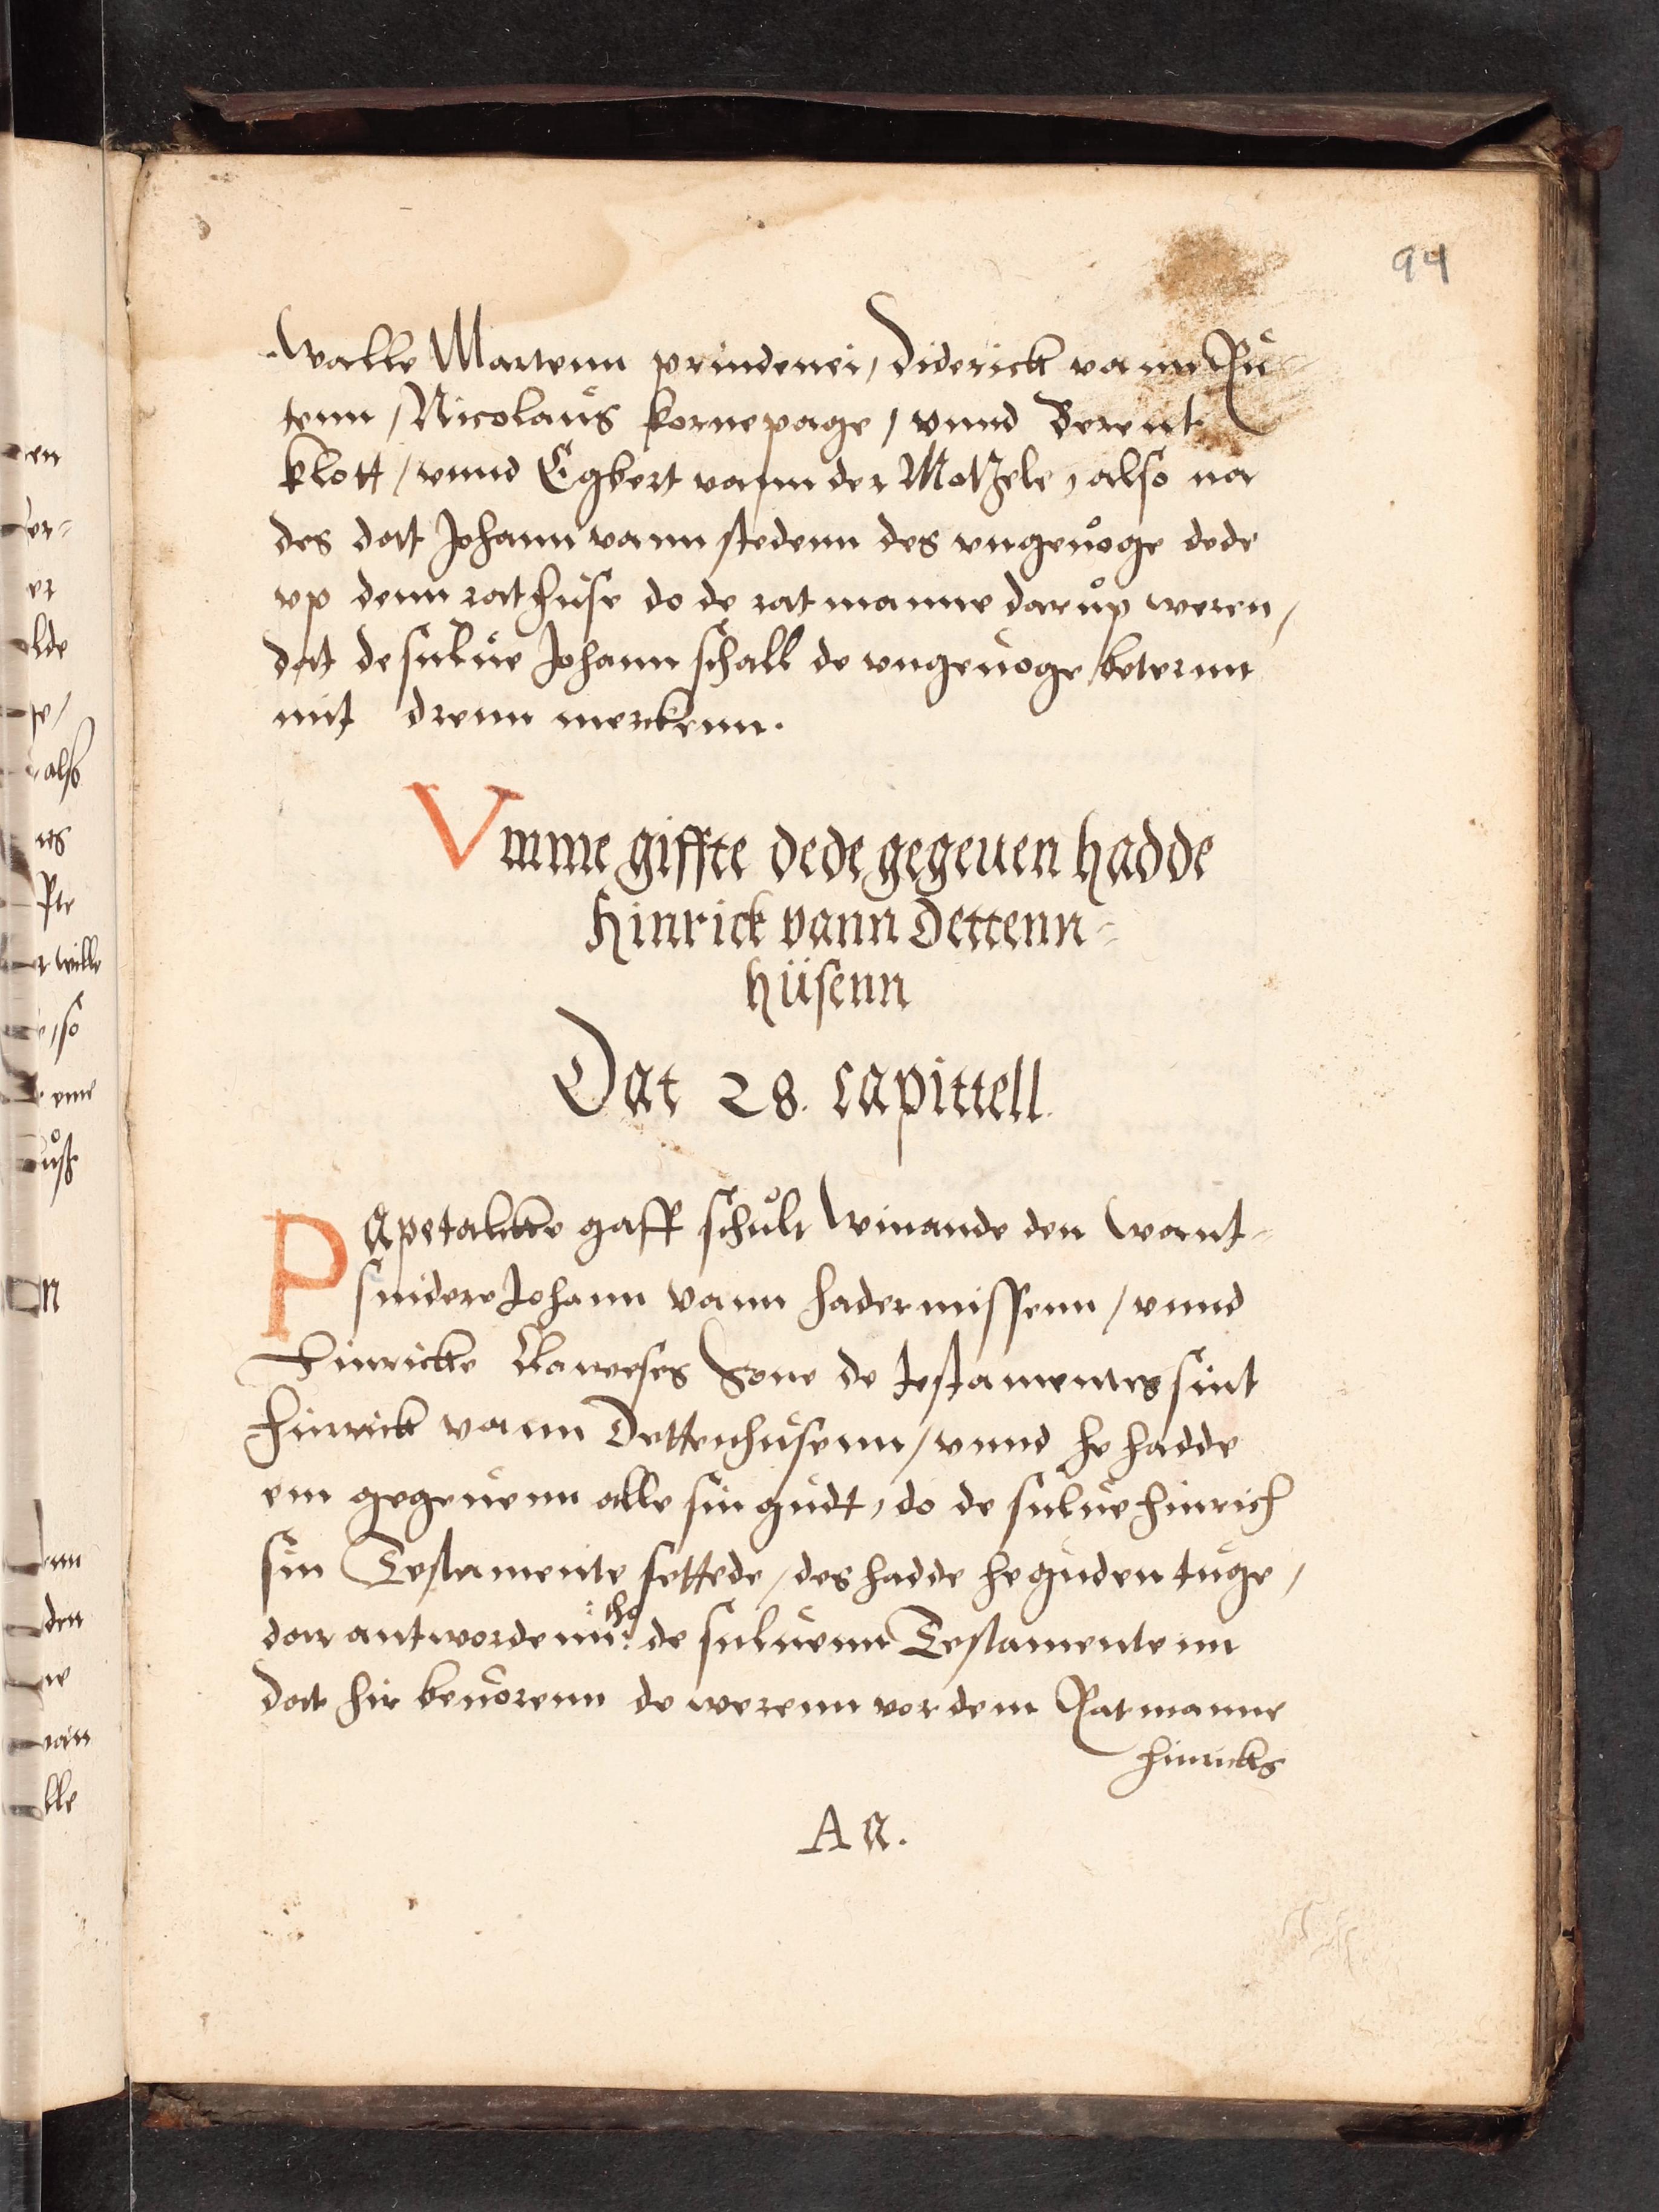 94
walle Martenn prindenei, Diderick vann Ru-
tenn / Nicolaus kornepage / vnnd Berent
klott / vnnd Egbert vann der Motzele, also na
des dat Johann vann stedenn des vngeuoge dede
vp denn rathuse do de ratmanne darup weren /
dat desulue Johann schall de vngeuoge beternn
mit drenn merkenn.
Vmme giffte dede gegeuen hadde
Hinrick vann Dettenn-
hüsenn
Dat 28. Capittell.
Papetalcke gaff schult Winande den want-
snidere Johann vann hadermissenn / vnnd
Hinricke Claweses Sone de testamentes sint
Hinrick vann Dettenhusenn / vnnd he hadde
em gegeuenn alle sin gudt, do de sulue Hinrich
sin Testamente settede / des hadde he guden tuge /
dar antwordenn tho de suluenn Testamentenn
dat hir beuorenn de werenn vor dem Ratmanne
Hinricks
Aa.